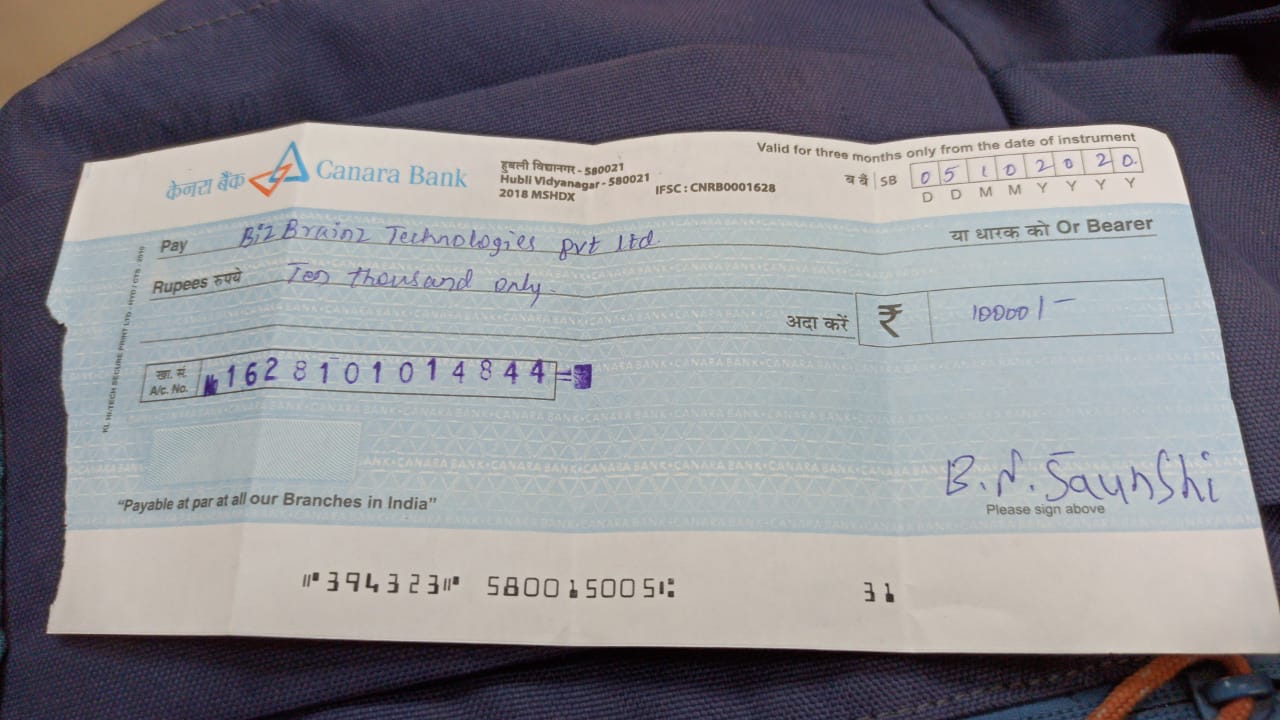 केनरा बैंक Canara Bank
हुबली विद्यानगर - 580021
Hubli Vidyanagar - 580021
2018 MSHDX
IFSC : CNRB0001628
Valid for three months only from the date of instrument
ब बैं SB 0 5 1 0 2 0 2 0
D D M M Y Y Y Y
Pay BizBrainz Technologies pvt ltd.
या धारक को Or Bearer
Rupees रुपये Ten thousand only.
अदा करें ₹ 10000/-
खा. सं.
A/c. No. 1628101014844
CANARA BANK•CANARA BANK•CANARA BANK•CANARA BANK
"Payable at par at all our Branches in India"
B. N. Saunshi
Please sign above
⑈394323⑈ 580015005⑆ 31